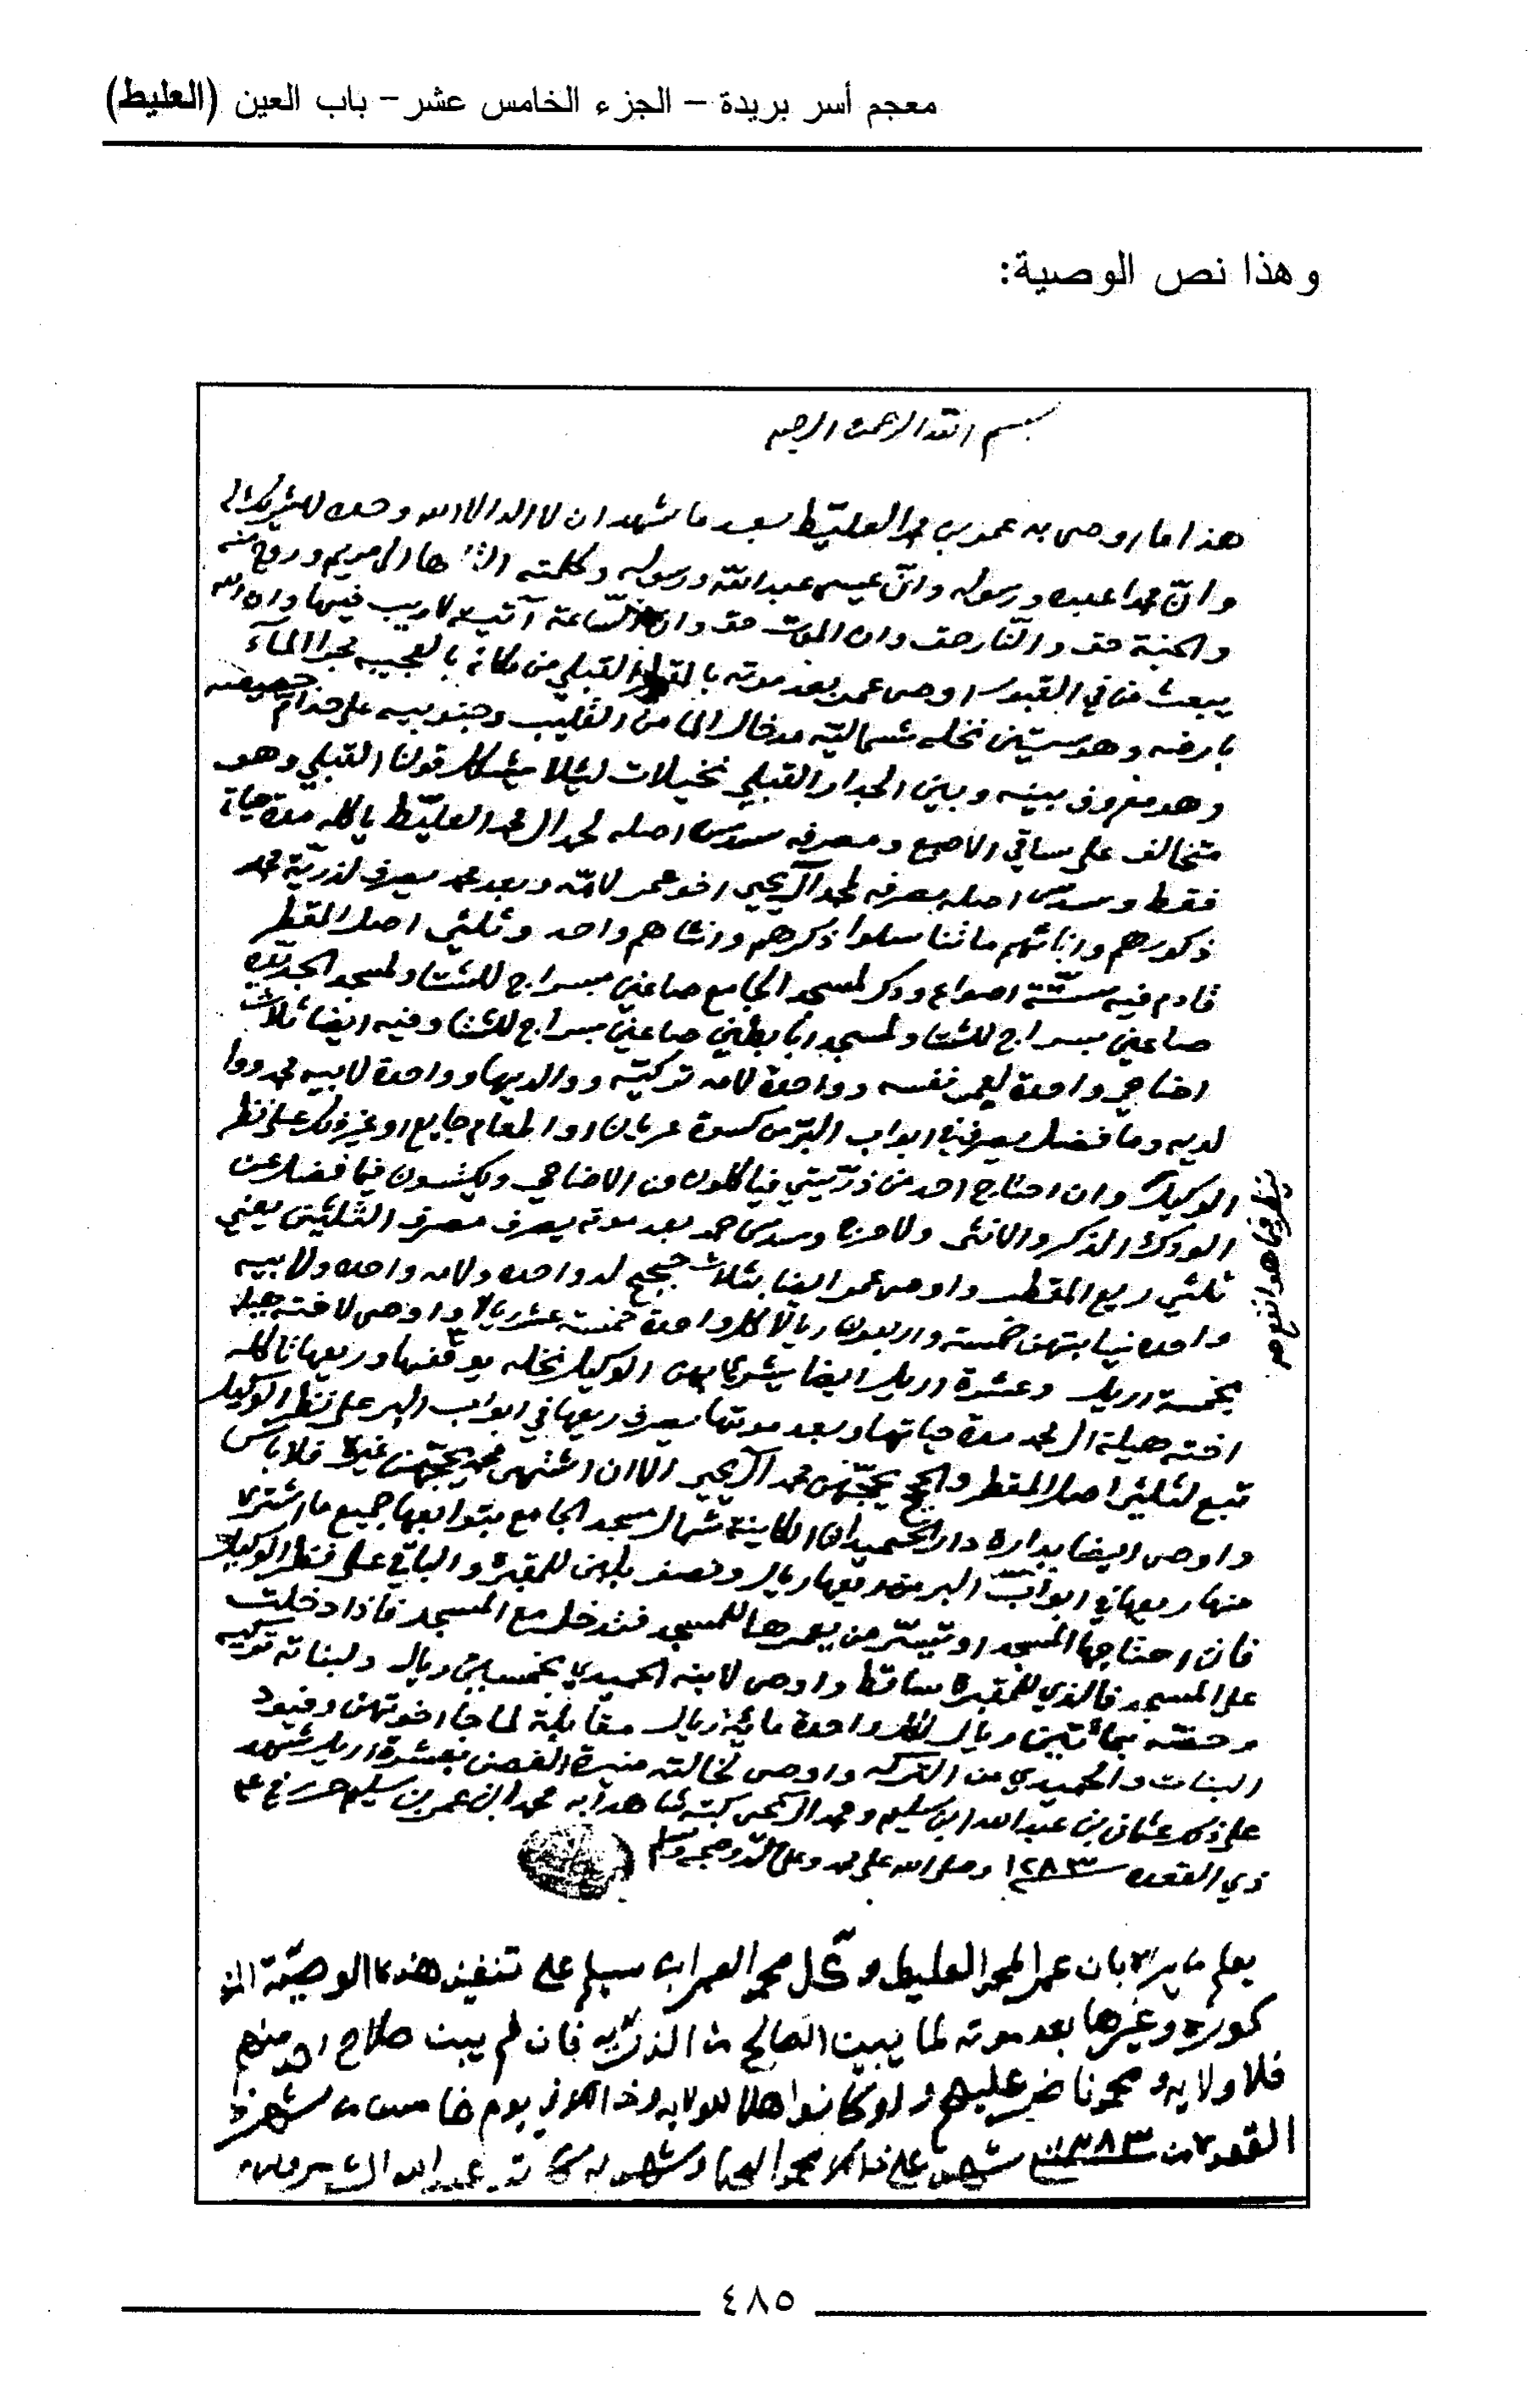 معجم أسر بريدة – الجزء الخامس عشر – باب العين (العليط)
وهذا نص الوصية:
بسم الله الرحمن الرحيم
هذا ما اوصى به عمر بن محمد العليّط بعد ما شهد ان لا اله الا الله وحده لا شريك له
وانّ محمدا عبده ورسوله وانّ عيسى عبد الله ورسوله وكلمته القاها الى مريم وروح منه
والجنة حق والنّار حق وان الموت حق وان السّاعة آتية لا ريب فيها وان الله
يبعث من في القبور اوصى عمر بعد موته بالمقطر القبلي من مكانه بالعجيبه مجرا المآء
بارضه وهو ستين نخله شماليّه مدخال الما من القليب وجنوبيه على
وهو معروف بينه وبين الجدار القبلي نخيلات لئلا يشكل قولنا القبلي وهو
متخالف على ساقي الاصبع ومصرفه سدس اصله لحمد ال محمد العليّط ياكله مدة حياة
فقط وسدس اصله يصرفه لمحمد آل يحيى اخو عمر لامّه وبعد محمد يصرف لذريّة محمد
ذكورهم واناثهم ما تناسلوا ذكرهم وانثاهم واحد وثلثي اصل المقطر
قادم فيه ستّة اصواع ودك لمسجد الجامع صاعين بسراج للشتا ولمسجد الجديّده
صاعين بسراج للشتا ولمسجد ابا بطين صاعين بسراج للشتا وفيه ايضا ثلاث
اضاحي واحدة لعمر نفسه وواحدة لامه تركيّه ووالديها وواحدة لابيه محمد ووا
لديه وما فضل يصرف في ابواب البرّ من كسوة عريان او اطعام جايع او غير ذلك على نظر
الوكيل وان احتاج احد من ذرّيتي فياكلون من الاضاحي ويكتسون فيما فضل عن
الودك الذكر والانثى ولا حرج وسدس حمد بعد موته يصرف مصرف الثلثين يعني
ثلثي ريع المقطر واوصى عمر ايضا بثلاث حجج له واحده ولامه واحده ولابيه
واحده نيابتهن خمسة واربعون ريالا كل واحدة خمسة عشر ريالا واوصى لاخته هيلة
بخمسة اريل وعشرة اريل ايضا يشري بهن الوكيل نخله يوقفها وريعها تاكله
اخته هيلة ال محمد مدة حياتها وبعد موتها يصرف ريعها في ابواب البر على نظر الوكيل
تبع لثلثي اصل المقطر والحجج يحجّهن محمد آل يحيى الا ان اشتهى محمد يحججهن غيره فلا باس
واوصى ايضا بداره دار الحميدان الكاينة شمال مسجد الجامع بتوابعها جميع ما اشترى
منها ريعها في ابواب البر من ريعها ريال ونصف للمقبره والباقي على نظر الوكيل
فان احتاجها المسجد او تيسّر من يعمرها للمسجد فتدخل مع المسجد فاذا دخلت
على المسجد فالذي للمقبرة ساقط واوصى لابنه الحميدي بخمسين ريال ولبناته تركيه
وحصّه بمائتين ريال لكل واحدة مائة ريال مقابلة لما جا اخوتهن وفيود
البنات والحميدي من التركه واوصى لخالته منيرة الغصن بعشرة اريل شهد
على ذلك عثمان بن عبد الله ابن سليم ومحمد ال يحيى كتبه شاهدا به محمد ابن عمر بن سليم حرر في ٤
ذي القعده سنة ١٢٨٣ وصلى الله على محمد وعلى آله وصحبه وسلم
ينظر فيما هو انفع
يعلم من يراه بان عمر المحمد العليط وكّل محمد العمر ابن سليم على تنفيذ هذه الوصيّة المذ
كوره وغيرها بعد موته لما يبين الصالح من الذريه فان لم يبن صلاح احد منهم
فلا ولايه ومحمد ناضر عليهم ولو كانوا اهلا للولايه وذالك في يوم خامس من شهر ذ
القعده من سنة ١٢٨٣ شهد على ذالك محمد اليحيا وشهد به كاتبه عبد الله
٤٨٥